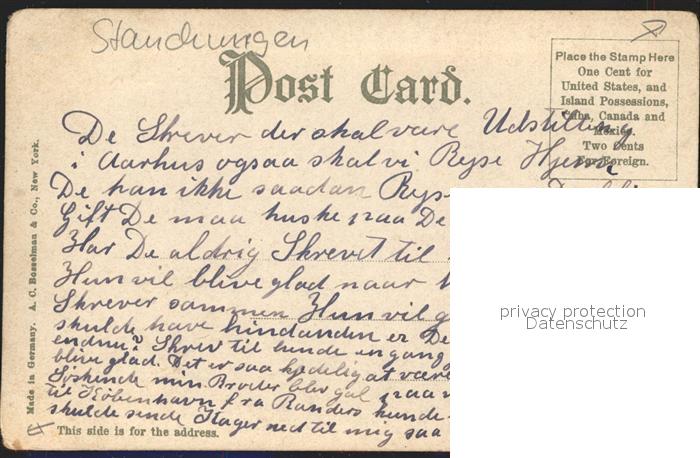 Standrungen
Post Card.
Place the Stamp Here
One Cent for
United States, and
Island Possessions,
Cuba, Canada and
Mexico.
Two Cents
For Foreign.
De Skrever der skal være Udstilling
i Aarhus ogsaa skal vi Rejse Hjem
De kan ikke saadan Rejs
Gift De maa huske paa De
Har De aldrig Skrevet til
Hun vil blive glad naar
Skrever sammen Hun vil g
skulde have hinanden er De
endnu? Skriv til hende engang
blive glad. Det er saa kedelig at være
Søskende min Broder blev gal paa
til København fra Randers hunde
skulde sende Kager ned til mig saa
This side is for the address.
Made in Germany. A. C. Bosselman & Co., New York.
privacy protection
Datenschutz